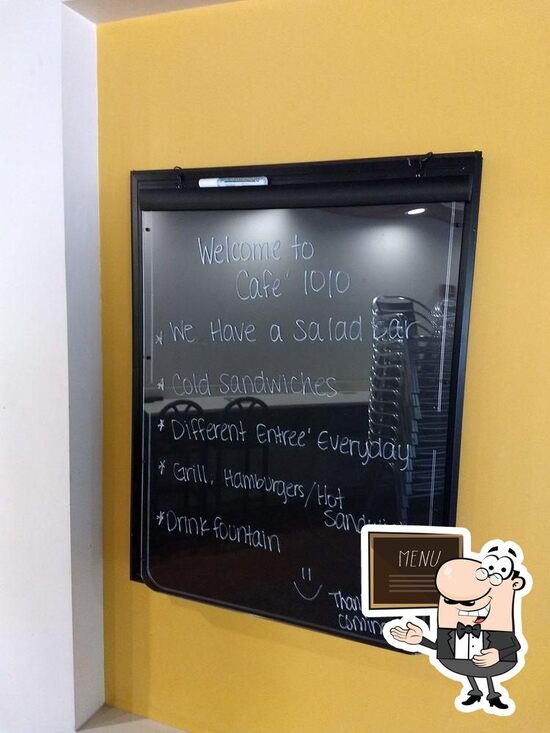 Welcome to
Cafe' 1010
* We Have a Salad bar
* Cold Sandwiches
* Different Entree' Everyday
* Grill, Hamburgers/Hot
* Drink fountain
MENU